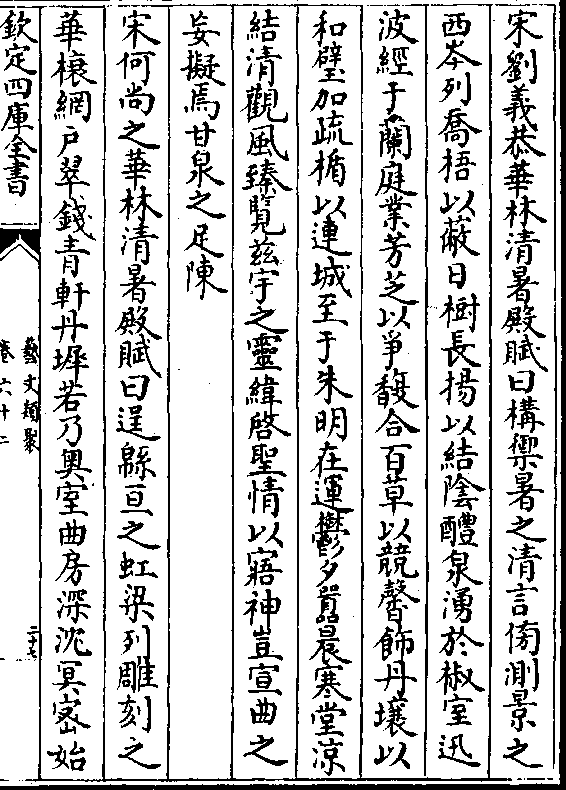 宋劉義恭華林清暑殿賦曰構禦暑之清言傍測景之
西岑列喬梧以蔽日樹長揚以結陰醴泉湧於椒室迅
波經于蘭庭業芳芝以爭馥合百草以競馨飾丹壤以
和璧加疏楯以連城至于朱明在運鬱夕嚣晨寒堂涼
結清觀風臻覽茲宇之靈緯啓聖情以寤神豈宣曲之
妄擬焉甘泉之足陳
宋何尚之華林清暑殿賦曰逞緜亘之虹梁列雕刻之
華榱網戶翠錢青軒丹墀若乃奥室曲房深沈冥宻始
欽定四庫全書
藝文類聚
卷六十二
二十七